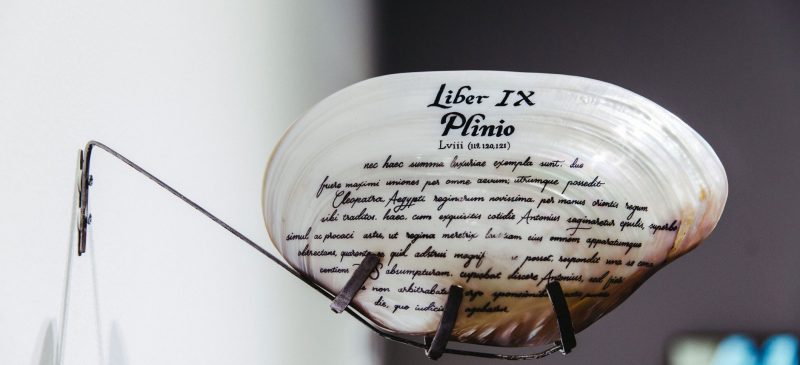 Liber IX
Plinio
Lviii (119, 120, 121)
nec haec summa luxuriae exempla sunt. duo
fuere maximi uniones per omne aevum; utrumque possedit
Cleopatra, Aegypti reginarum novissima, per manus orientis regum
sibi traditos. haec, cum exquisitis cotidie Antonius saginaretur epulis, superbo
simul ac procaci astu, ut regina meretrix lautitiam eius omnem apparatumque
obtrectans, quaerente eo quid adstrui magnif posset, respondit una se cena
contiens absumpturam. cupiebat discere Antonius, sed fieri
non arbitrabatur ergo sponsionibus
die, quo iudicium agebatur